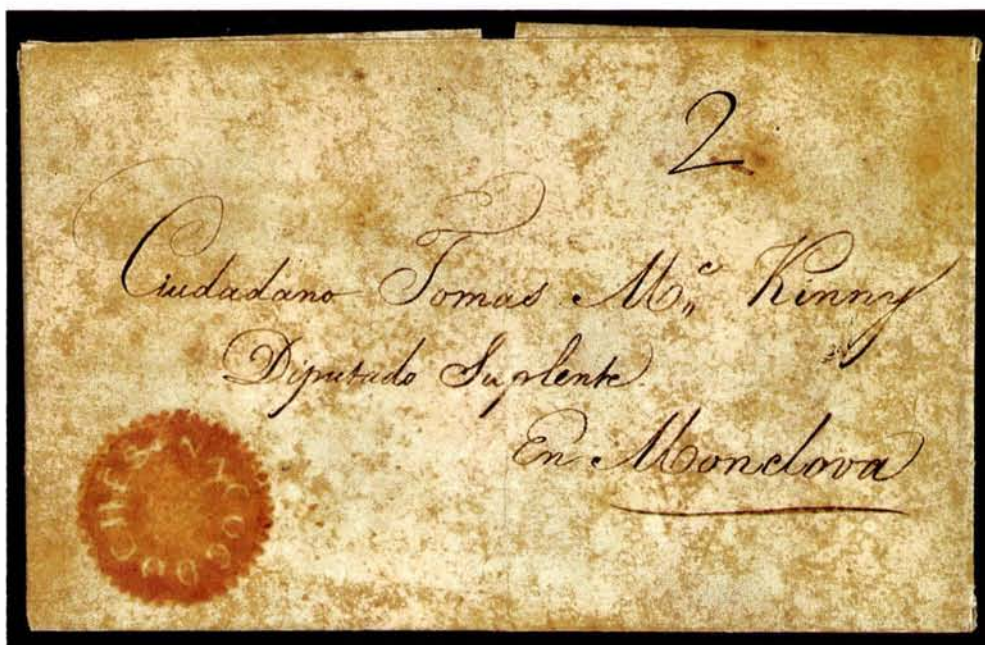 2
Ciudadano Tomas Mc. Kinny
Diputado Suplente
En Monclova
NACOGDOCHES